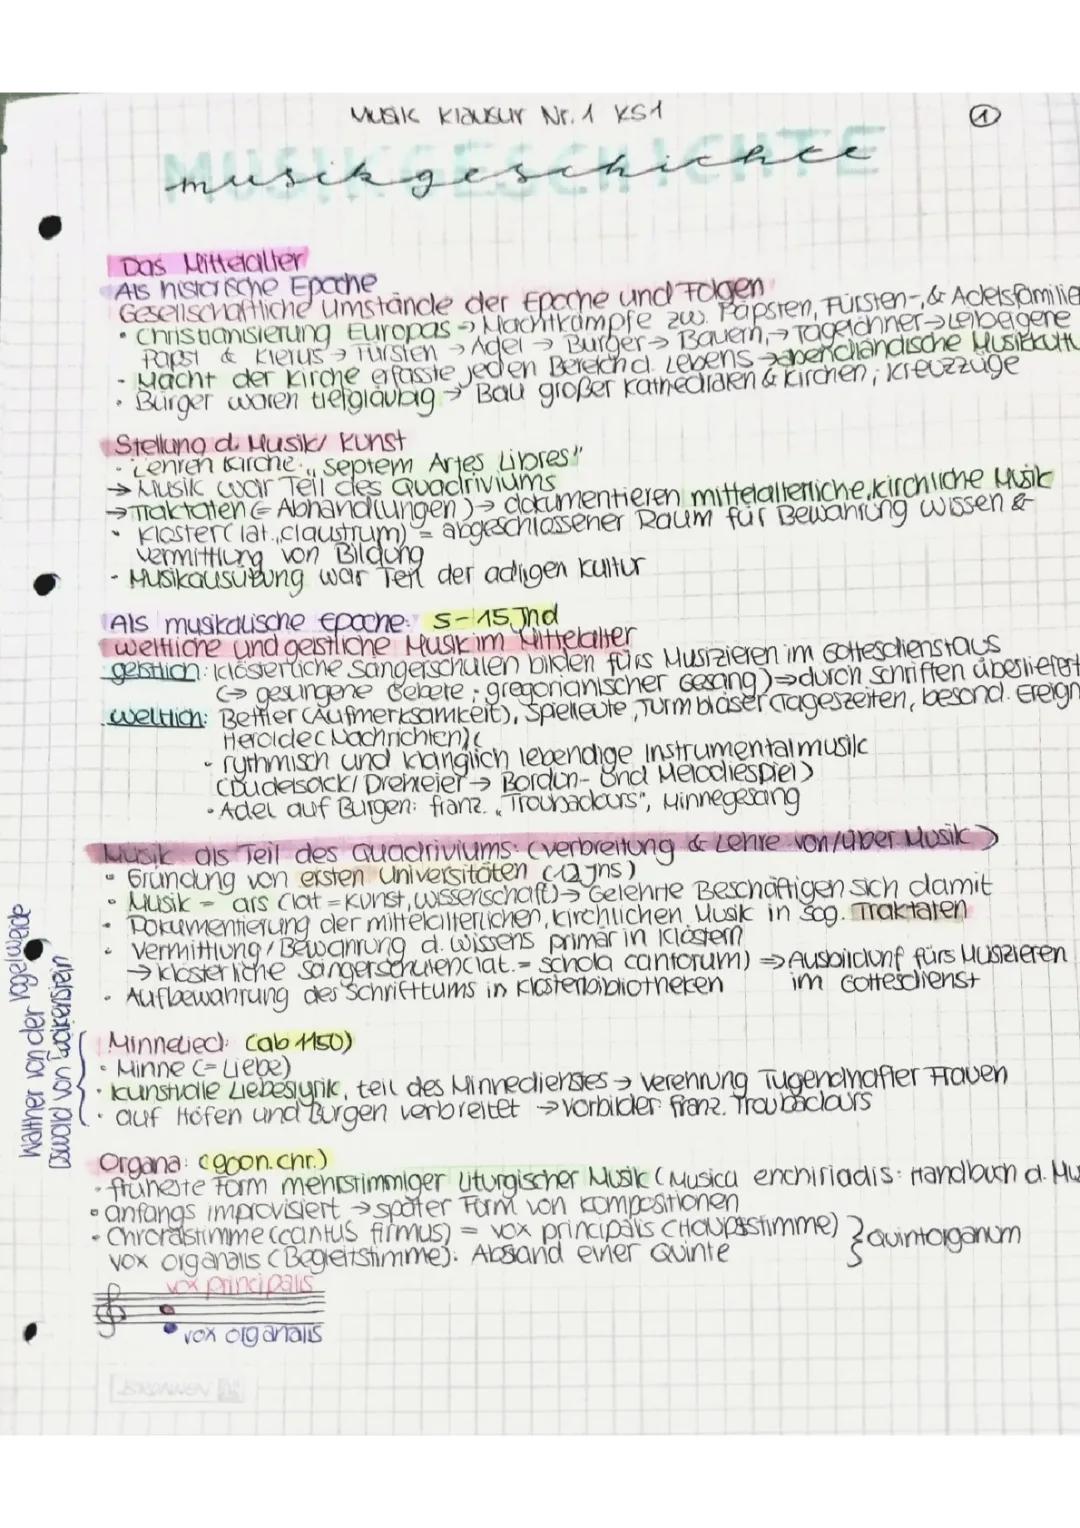 Musik Klausur Nr. 1 KS1
1
MUSIKGESCHICHTE
musikgeschichte
Das Mittelalter
Als historische Epoche
Gesellschaftliche Umstände der Epoche und Folgen
• Christianisierung Europas → Machtkämpfe zw. Päpsten, Fürsten-, & Adelsfamilie
Papst & Klerus → Fürsten → Adel → Bürger → Bauern, → Tagelöhner → Leibeigene
• Macht der Kirche erfasste jeden Bereich d. Lebens → abendländische Musikkultu
• Bürger waren tiefgläubig → Bau großer Kathedralen & Kirchen; Kreuzzüge
Stellung d. Musik/ Kunst
• Lehren Kirche: „septem Artes Libres"
→ Musik war Teil des Quadriviums
→ Traktaten (= Abhandlungen) → dokumentieren mittelalterliche, kirchliche Musik
• Kloster (lat. „claustrum) = abgeschlossener Raum für Bewahrung Wissen &
Vermittlung von Bildung
• Musikausübung war Teil der adligen Kultur
Als musikalische Epoche: 5-15 Jhd
weltliche und geistliche Musik im Mittelalter
geistlich: klösterliche Sängerschulen bilden fürs Musizieren im Gottesdienst aus
(→ gesungene Gebete; gregorianischer Gesang) ⇒ durch Schriften überliefert
weltlich: Bettler (Aufmerksamkeit), Spielleute, Turmbläser (Tageszeiten, besond. Ereign
Herolde (Nachrichten) (
• rythmisch und klanglich lebendige Instrumentalmusik
(Dudelsack/ Drehleier → Bordun- und Melodiespiel)
• Adel auf Burgen: franz. „Troubadours", Minnegesang
Musik als Teil des Quadriviums: (Verbreitung & Lehre von/über Musik)
• Gründung von ersten Universitäten (12 Jhs)
• Musik = ars (lat = Kunst, Wissenschaft) → Gelehrte Beschäftigen sich damit
• Dokumentierung der mittelalterlichen, kirchlichen Musik in sog. Traktaten
• Vermittlung/ Bewahrung d. Wissens primär in Klöstern
→ klösterliche Sängerschulen (lat. = schola cantorum) ⇒ Ausbildunf fürs Musizieren
im Gottesdienst
• Aufbewahrung des Schrifttums in Klosterbibliotheken
Walther von der Vogelweide
Oswald von Wolkenstein
Minnelied: (ab 1150)
• Minne (= Liebe)
• kunstvolle Liebeslyrik, teil des Minnedienstes → Verehrung Tugendhafter Frauen
• auf Höfen und Burgen verbreitet → Vorbilder: franz. Troubadours
Organa: (900n.chr.)
• früheste Form mehrstimmiger liturgischer Musik (Musica enchiriadis: Handbuch d. Mu
• anfangs improvisiert → später Form von Kompositionen
• Chroralstimme (cantus firmus) = vox principalis (Haupsstimme)
vox organalis (Begleitstimme): Absand einer Quinte
} Quintorganum
vox principalis
vox organalis
BRUNNEN